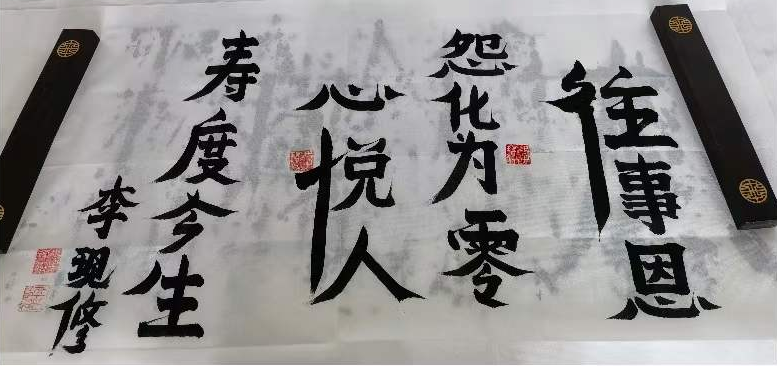 往事恩
怨化为零
心悦人
寿度今生
李现修